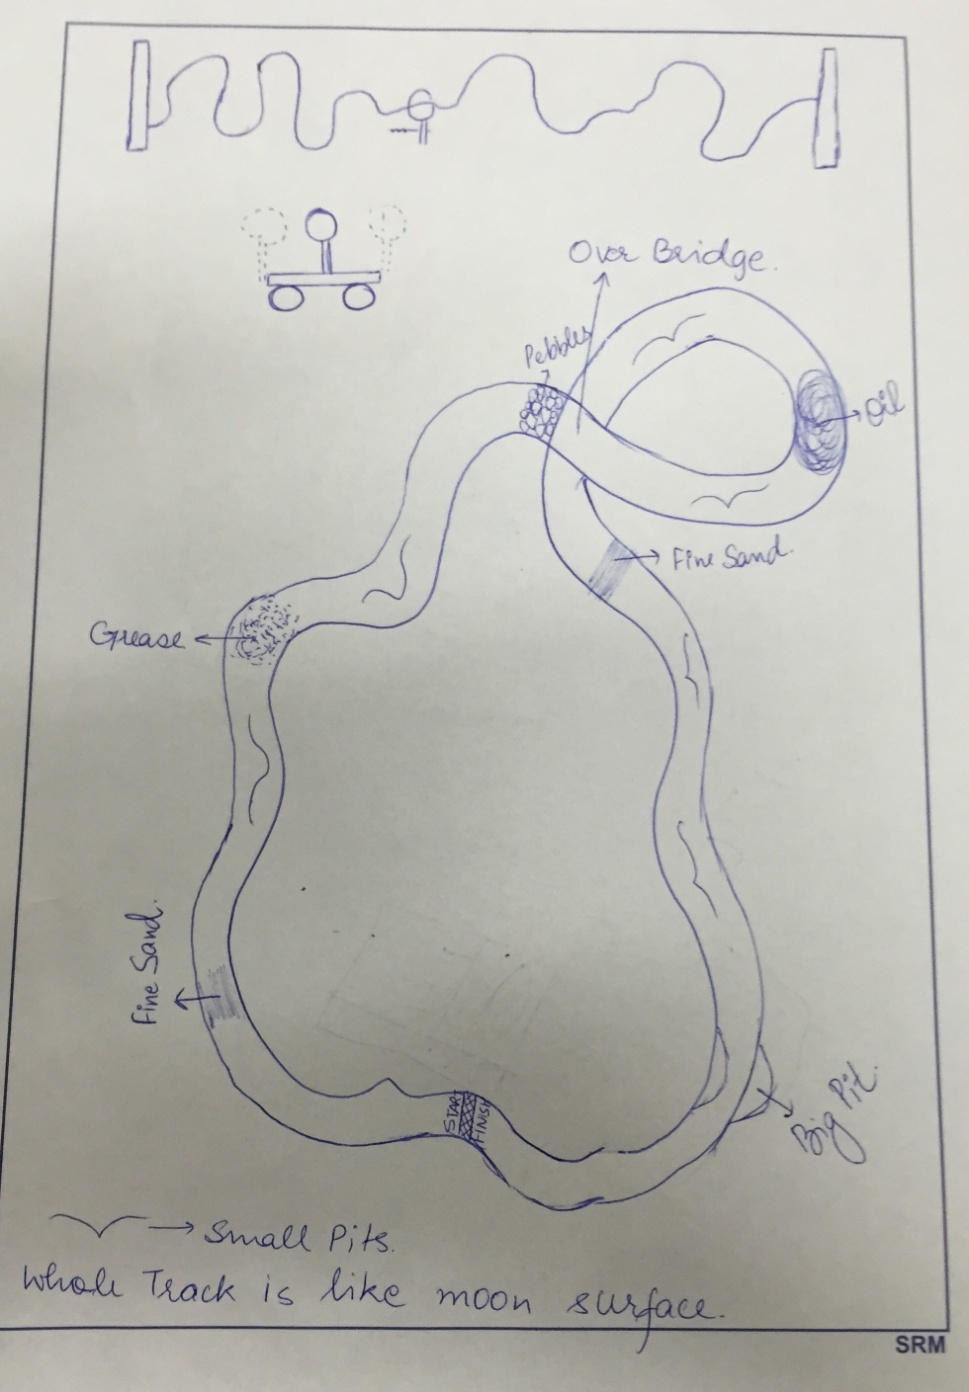 Over Bridge.
Pebbles
Oil
Fine Sand.
Grease
Fine Sand.
START
FINISH
Big Pit.
Small Pits.
Whole Track is like moon surface.
SRM